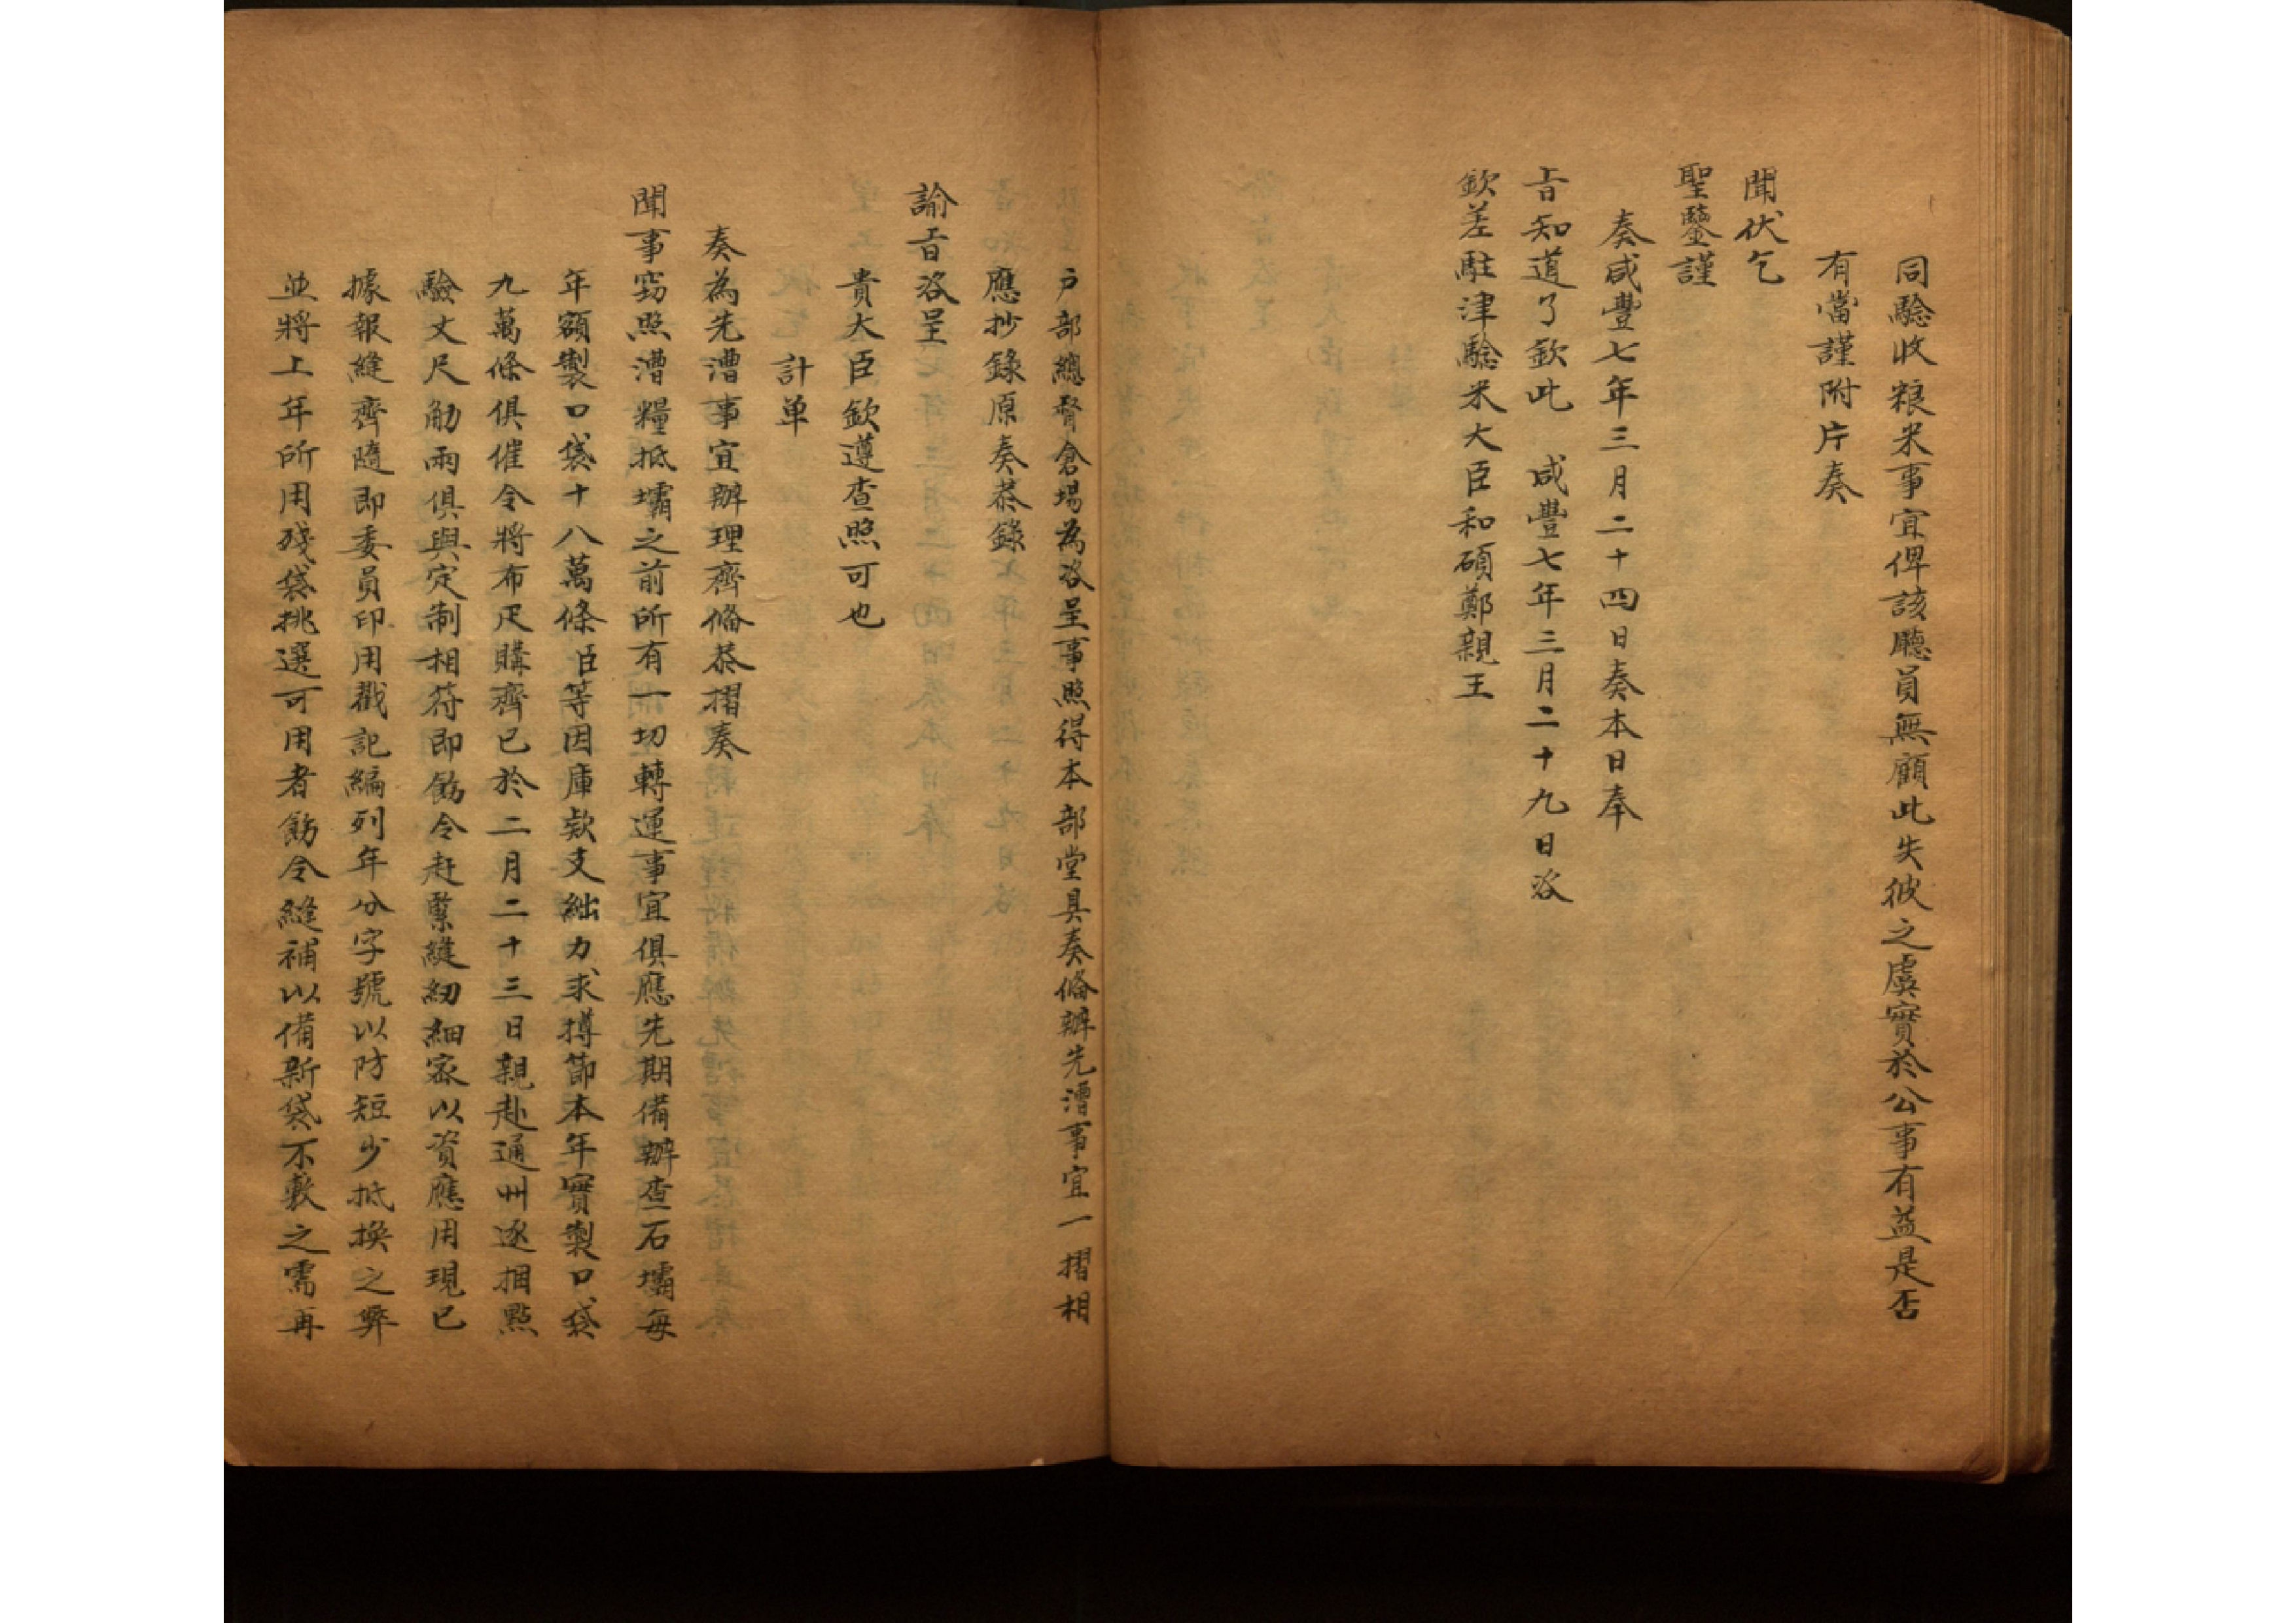 同驗收粮米事宜俾該廳員無顧此失彼之虞實於公事有益是否
有當謹附片奏
聞伏乞
聖鑒謹
奏咸豐七年三月二十四日奏本日奉
旨知道了欽此 咸豐七年三月二十九日咨
欽差駐津驗米大臣和碩鄭親王
戶部總督倉場為咨呈事照得本部堂具奏俻辦先漕事宜一摺相
應抄錄原奏恭錄
諭旨咨呈
貴大臣欽遵查照可也
計单
奏為先漕事宜辦理齊俻恭摺奏
聞事窃照漕糧抵壩之前所有一切轉運事宜俱應先期備辦查石壩每
年額製口袋十八萬條臣等因庫欵支絀力求撙節本年實製口袋
九萬條俱催令將布疋購齊已於二月二十三日親赴通州逐捆點
驗丈尺觔兩俱與定制相符即飭令赶緊縫紉細密以資應用現已
據報縫齊隨即委員印用戳記編列年分字號以防短少抵換之弊
並將上年所用殘袋挑選可用者飭令縫補以備新袋不敷之需再